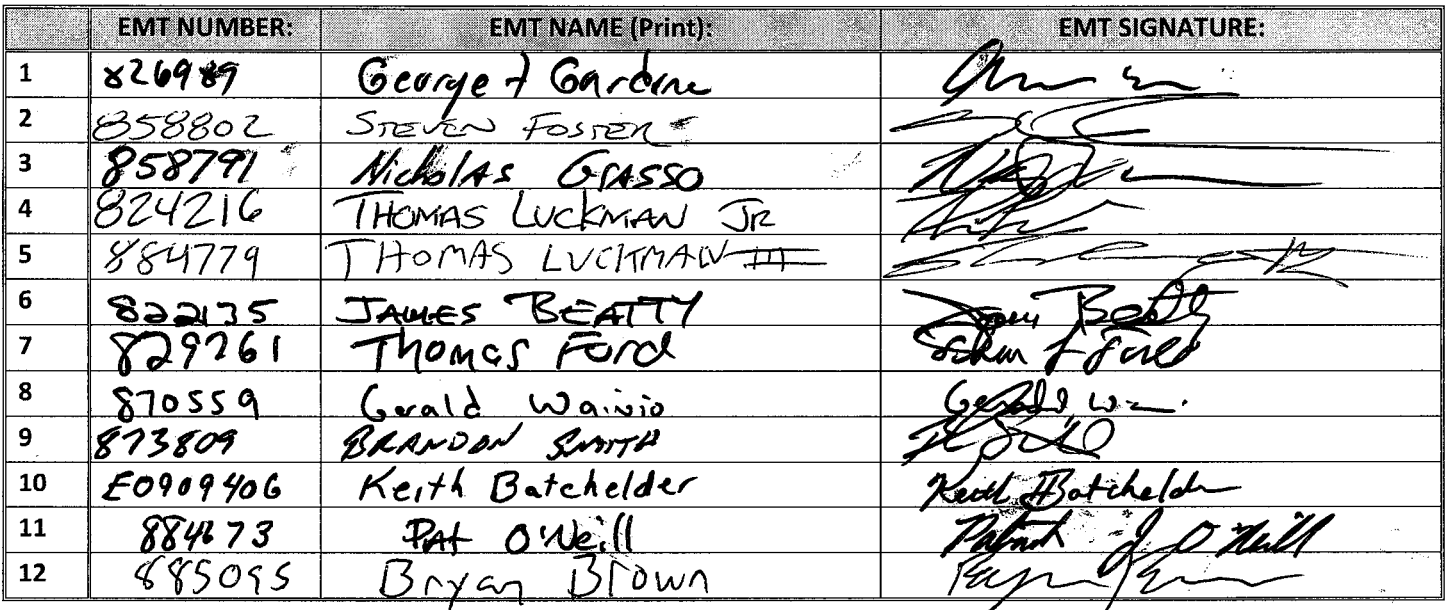 EMT NUMBER: EMT NAME (Print): EMT SIGNATURE:
1 826989 George F Gardine
2 858802 STEVEN FOSTER
3 858791 Nicholas GRASSO
4 824216 THOMAS LUCKMAN JR
5 884779 THOMAS LUCKMAN III
6 822135 JAMES BEATTY
7 829761 Thomas Ford
8 870559 Gerald Wainio
9 873809 BRANDON SMITH
10 E0909406 Keith Batchelder Keith Batchelder
11 884673 PAt O'Neill Patrick J O'Neill
12 885095 Bryan Brown